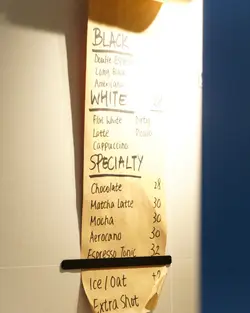 BLACK
Double Espresso
Long Black
Americano
WHITE
Flat White Dirty
Latte
Cappuccino
SPECIALTY
Chocolate 28
Matcha Latte 30
Mocha 30
Aerocano 30
Espresso Tonic 32
Ice/Oat +7
Extra Shot